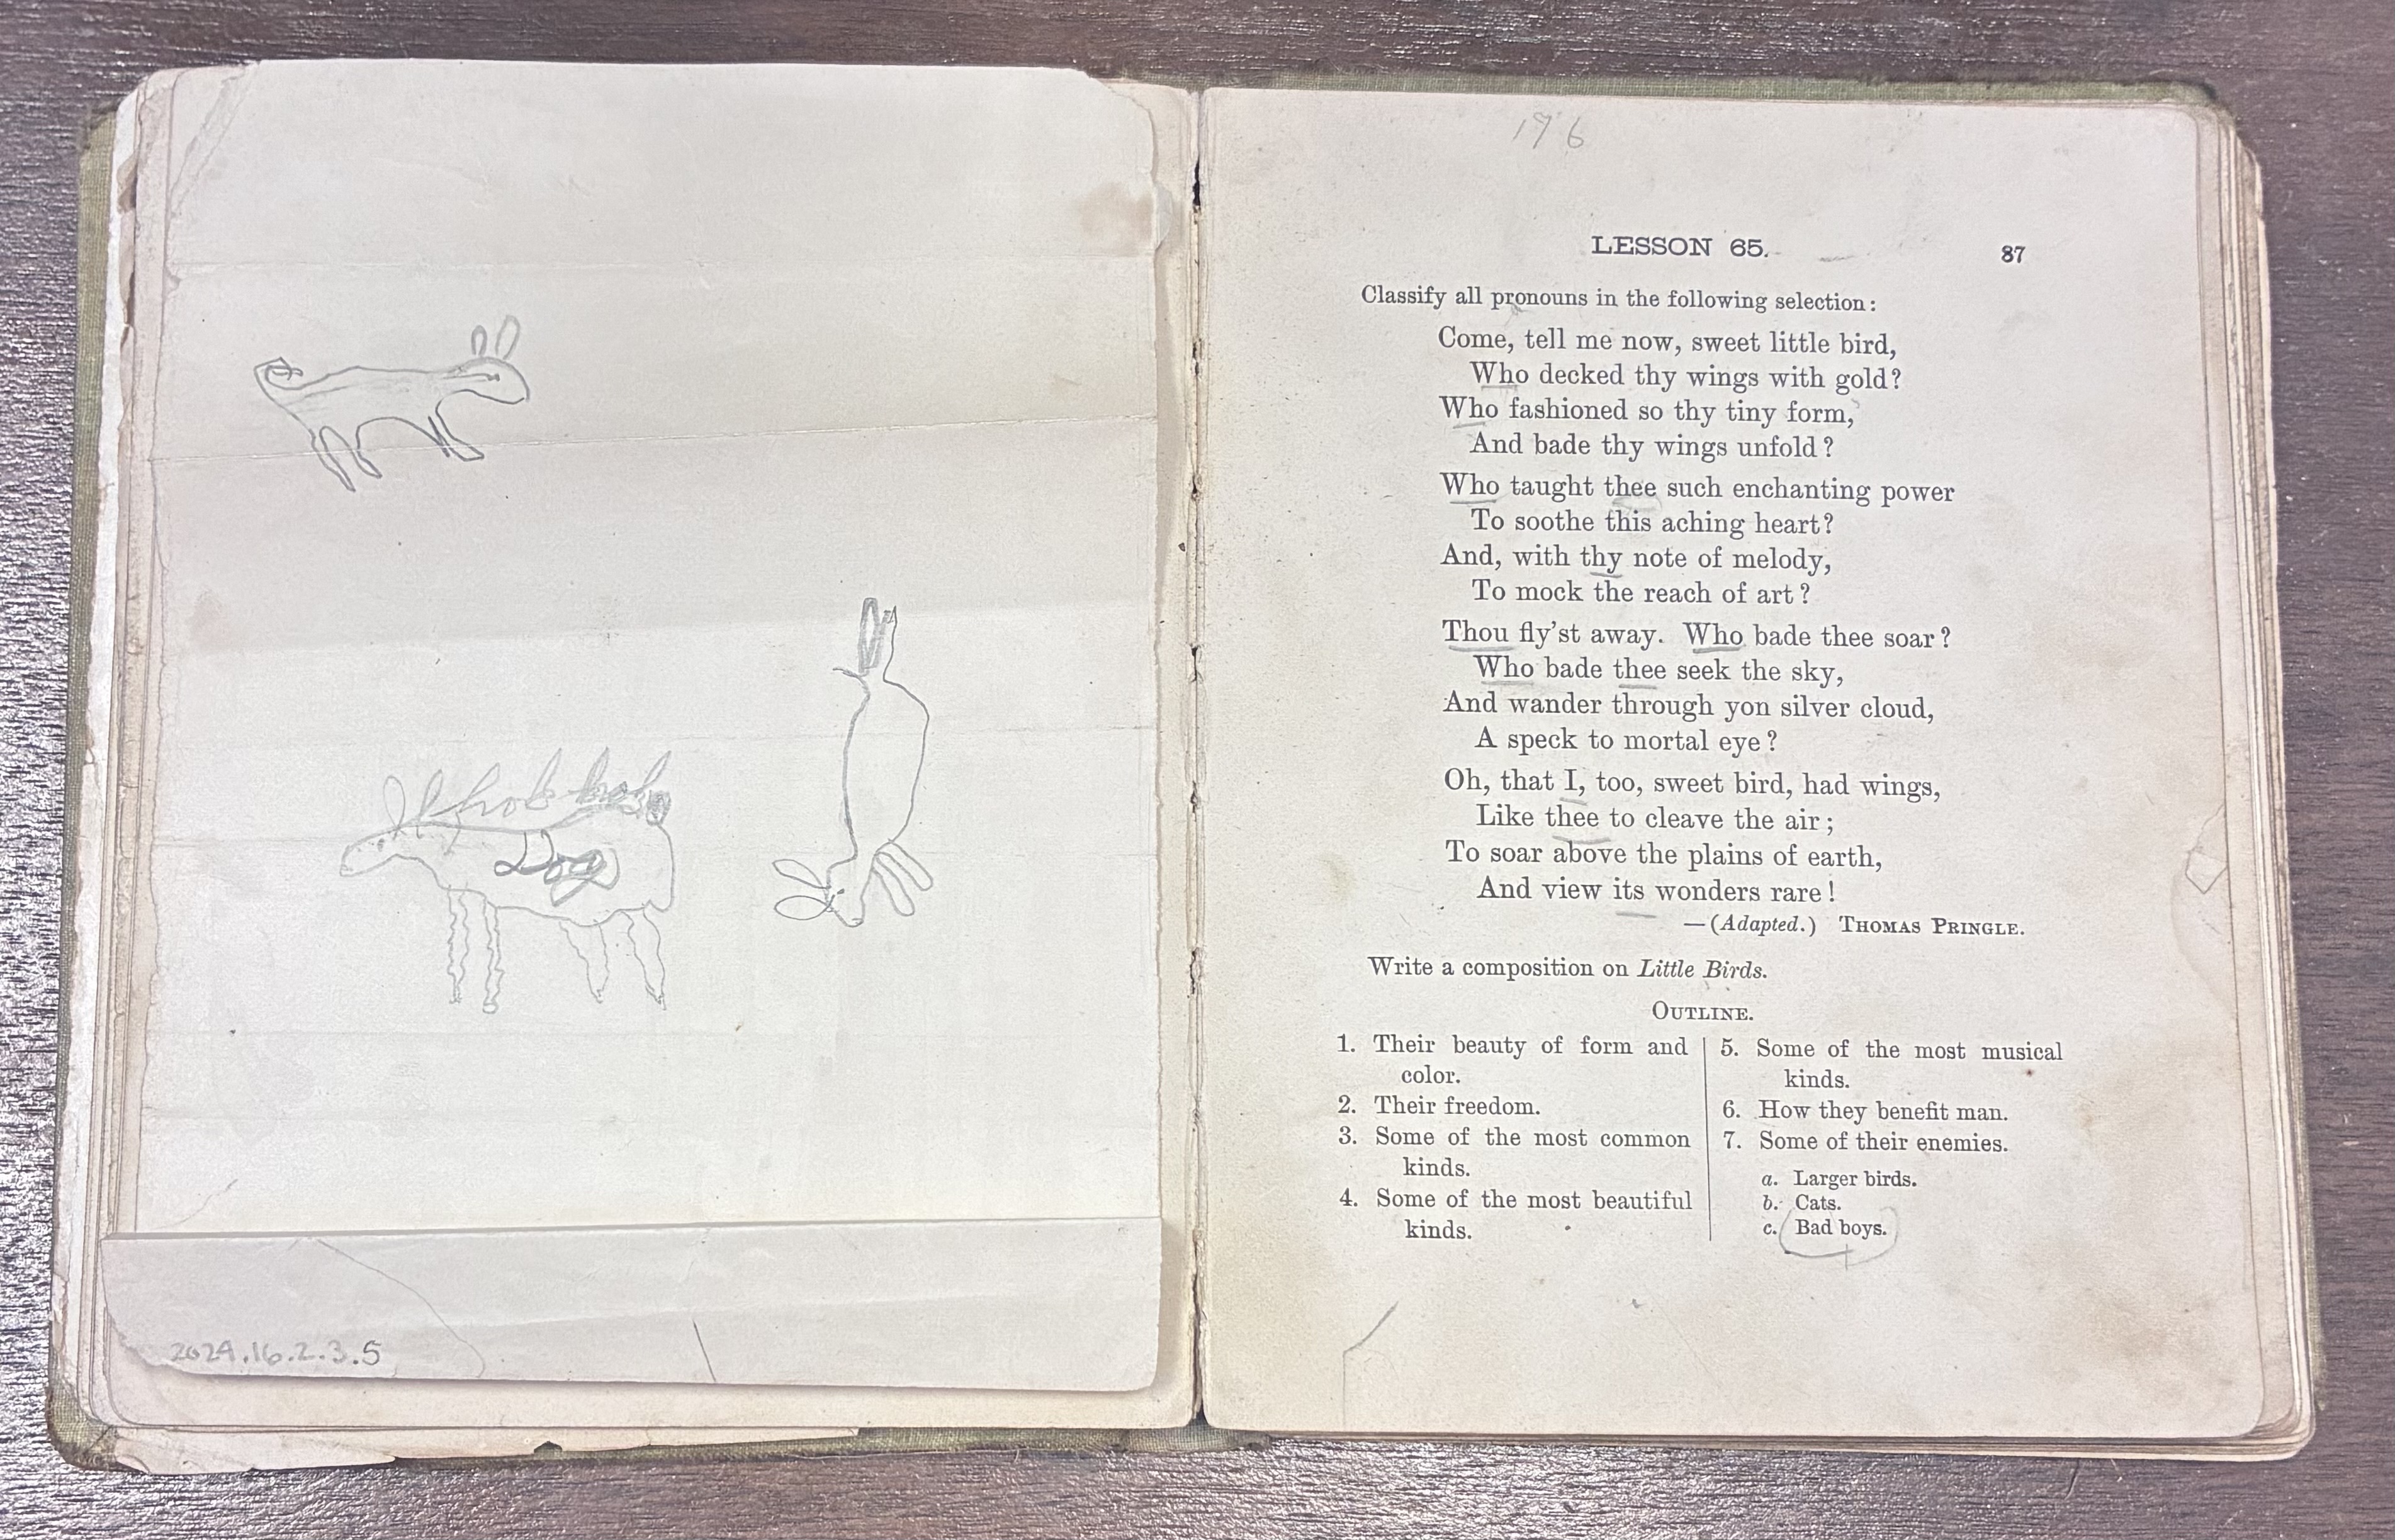 Dog
2024.16.2.3.5
176
LESSON 65. 87
Classify all pronouns in the following selection:
Come, tell me now, sweet little bird,
Who decked thy wings with gold?
Who fashioned so thy tiny form,
And bade thy wings unfold?
Who taught thee such enchanting power
To soothe this aching heart?
And, with thy note of melody,
To mock the reach of art?
Thou fly'st away. Who bade thee soar?
Who bade thee seek the sky,
And wander through yon silver cloud,
A speck to mortal eye?
Oh, that I, too, sweet bird, had wings,
Like thee to cleave the air;
To soar above the plains of earth,
And view its wonders rare!
—(Adapted.) THOMAS PRINGLE.
Write a composition on Little Birds.
OUTLINE.
1. Their beauty of form and
color.
2. Their freedom.
3. Some of the most common
kinds.
4. Some of the most beautiful
kinds.
5. Some of the most musical
kinds.
6. How they benefit man.
7. Some of their enemies.
a. Larger birds.
b. Cats.
c. Bad boys.